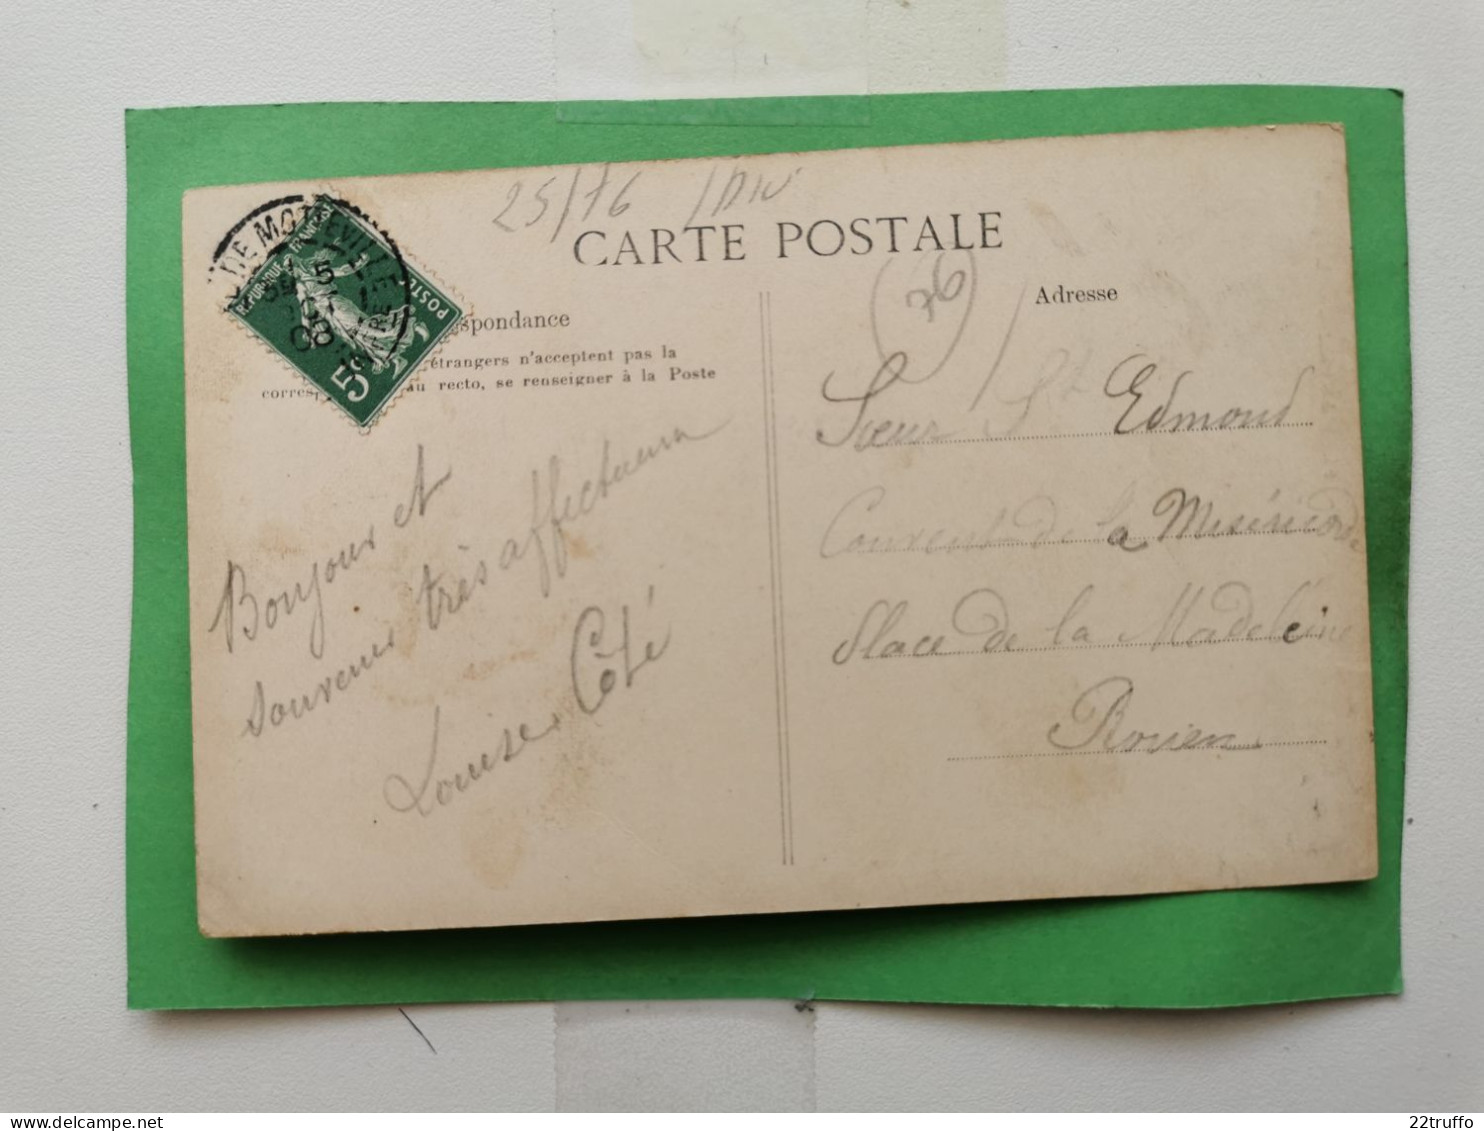 25/76
CARTE POSTALE
76
Adresse
spondance
étrangers n'acceptent pas la
corresp au recto, se renseigner à la Poste
REPUBLIQUE FRANÇAISE
POSTES
5
DE MOTTEVILLE
5
08
Bonjour et
souvenir très affectueux
Louise Côté
Sœur St Edmond
Couvent de la Miséricorde
Place de la Madeleine
Rouen
22truffo